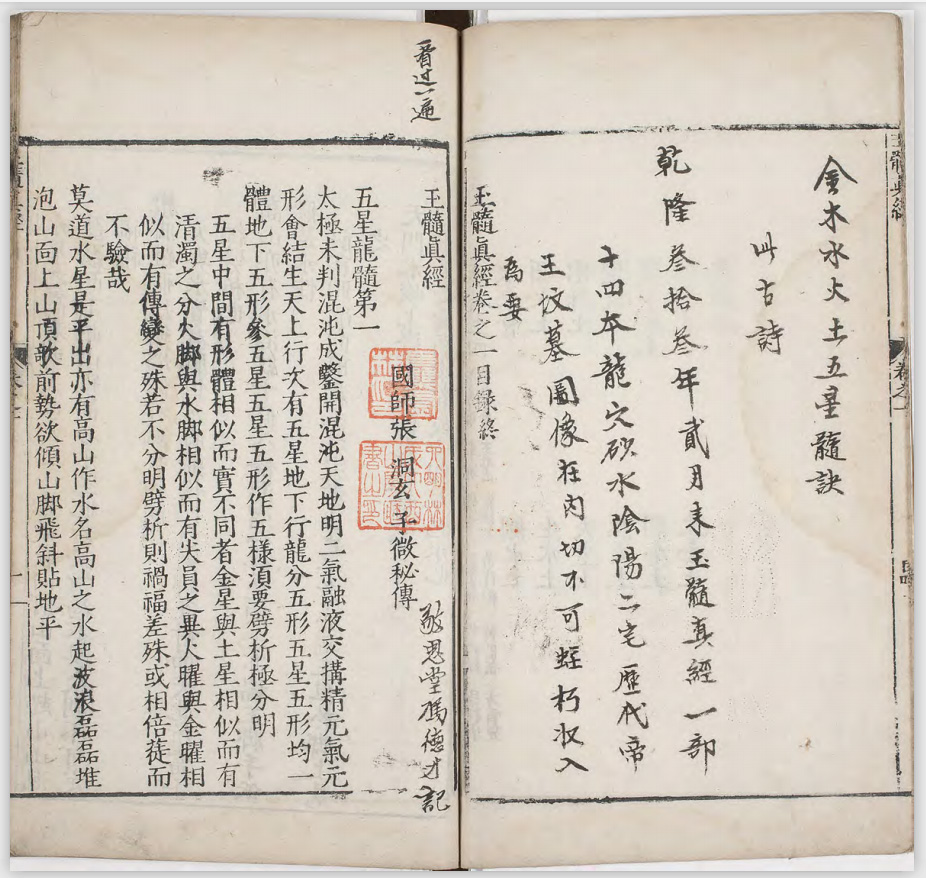 金木水火土五星髓訣
此古詩
乾隆叁拾叁年貳月来玉髓真經一部
十四本龍穴砂水陰陽二宅歷代帝
王坟墓圖像在内切不可蛀朽收入
為要
玉髓眞經卷之一目録終
看过一遍
玉髓眞經
敬恩堂馮德才記
國師張 洞玄 子微秘傳
五星龍髓第一
太極未判混沌成鑿開混沌天地明二氣融液交搆精元氣元
形會結生天上行次有五星地下行龍分五形五星五形均一
體地下五形參五星五星五形作五樣湏要劈析極分明
五星中間有形體相似而實不同者金星與土星相似而有
清濁之分火脚與水脚相似而有尖員之異人曜與金曜相
似而有傳變之殊若不分明劈析則禍福差殊或相倍蓰而
不驗哉
莫道水星是平出亦有高山作水名高山之水起波浪磊磊堆
泡山面上山頂欹前勢欲傾山脚飛斜貼地平